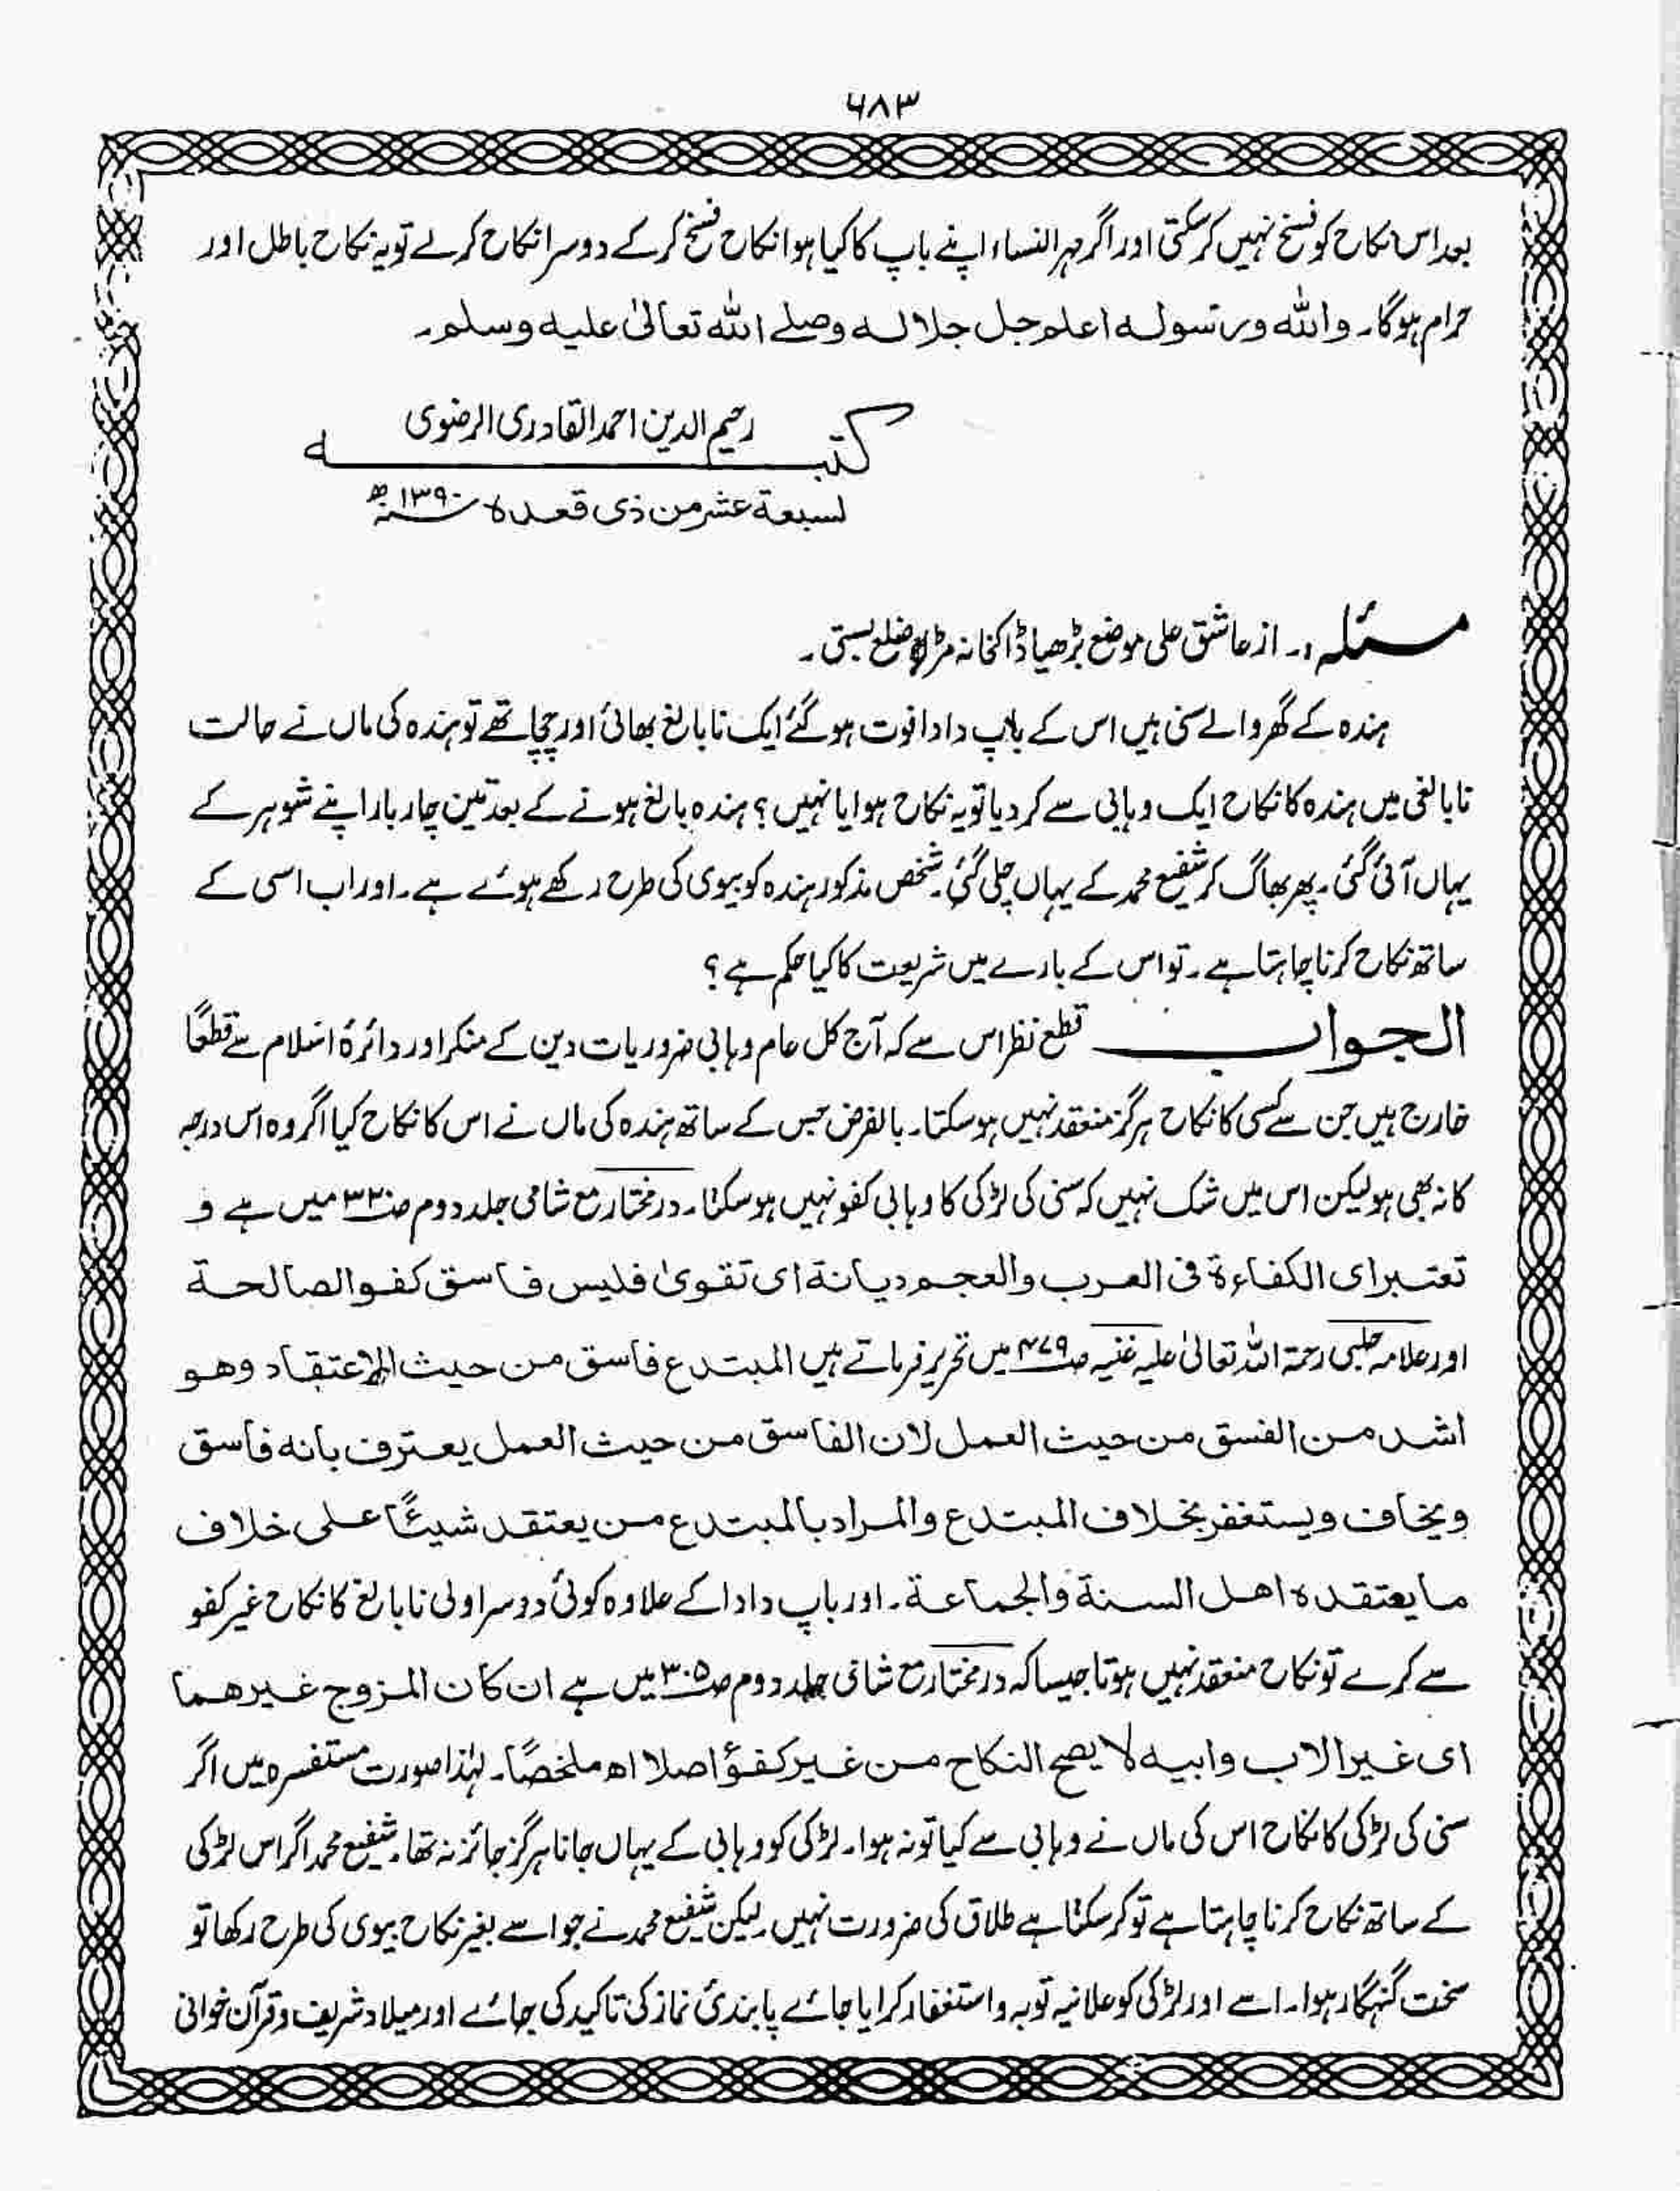 ۶۸۳
بعد اس نکاح کو فسخ نہیں کر سکتی اور اگر مہر النساء اپنے باپ کا کیا ہوا نکاح فسخ کر کے دوسرا نکاح کرلے تو یہ نکاح باطل اور
حرام ہوگا۔ واللہ ورسولہ اعلم جل جلالہ وصلے اللہ تعالیٰ علیہ وسلم۔
کتبہ رحیم الدین احمد القادری الرضوی
لسبعۃ عشر من ذی قعدہ سنہ ۱۳۹۰ھ
مسئلہ:۔ از عاشق علی موضع بڑھیا ڈاکخانہ ضلع بستی۔
ہندہ کے گھر والے سنی ہیں اس کے باپ دادا فوت ہو گئے ایک نابالغ بھائی اور چچا تھے تو ہندہ کی ماں نے حالت
نابالغی میں ہندہ کا نکاح ایک وہابی سے کر دیا تو یہ نکاح ہوا یا نہیں؟ ہندہ بالغ ہونے کے بعد تین چار بار اپنے شوہر کے
یہاں آئی گئی۔ پھر بھاگ کر شفیع محمد کے یہاں چلی گئی۔ شخص مذکور ہندہ کو بیوی کی طرح رکھے ہوئے ہے۔ اور اب اسی کے
ساتھ نکاح کرنا چاہتا ہے۔ تو اس کے بارے میں شریعت کا کیا حکم ہے؟
الجواب قطع نظر اس سے کہ آج کل عام وہابی ضروریات دین کے منکر اور دائرۂ اسلام سے قطعًا
خارج ہیں جن سے کسی کا نکاح ہرگز منعقد نہیں ہو سکتا۔ بالفرض جس کے ساتھ ہندہ کی ماں نے اس کا نکاح کیا اگر وہ اس درجہ
کا نہ بھی ہو لیکن اس میں شک نہیں کہ سنی کی لڑکی کا وہابی کفو نہیں ہو سکتا۔ درمختار مع شامی جلد دوم میں ہے و
تعتبر ای الکفاءۃ فی العرب والعجم دیانۃ ای تقویٰ فلیس فاسق کفو الصالحۃ
اور علامہ حلبی رحمۃ اللہ تعالیٰ علیہ غنیہ ص۴۷۹ میں تحریر فرماتے ہیں المبتدع فاسق من حیث الاعتقاد وهو
اشد من الفسق من حیث العمل لان الفاسق من حیث العمل یعترف بانه فاسق
ویخاف ویستغفر بخلاف المبتدع والمراد بالمبتدع من یعتقد شیئًا علی خلاف
ما یعتقدہ اهل السنۃ والجماعۃ۔ اور باپ دادا کے علاوہ کوئی دوسرا ولی نابالغ کا نکاح غیر کفو
سے کرے تو نکاح منعقد نہیں ہوتا جیسا کہ درمختار مع شامی جلد دوم ص۳۰۵ میں ہے ان کان المزوج غیرهما
ای غیر الاب وابیه لا یصح النکاح من غیر کفؤ اصلا اھ ملخصًا۔ لہٰذا صورت مستفسرہ میں اگر
سنی کی لڑکی کا نکاح اس کی ماں نے وہابی سے کیا تو نہ ہوا۔ لڑکی کو وہابی کے یہاں جانا ہرگز جائز نہ تھا۔ شفیع محمد اگر اس لڑکی
کے ساتھ نکاح کرنا چاہتا ہے تو کر سکتا ہے طلاق کی ضرورت نہیں۔ لیکن شفیع محمد نے جو اسے بغیر نکاح بیوی کی طرح رکھا تو
سخت گنہگار ہوا۔ اسے اور لڑکی کو علانیہ توبہ و استغفار کرایا جائے پابندئ نماز کی تاکید کی جائے اور میلاد شریف و قرآن خوانی